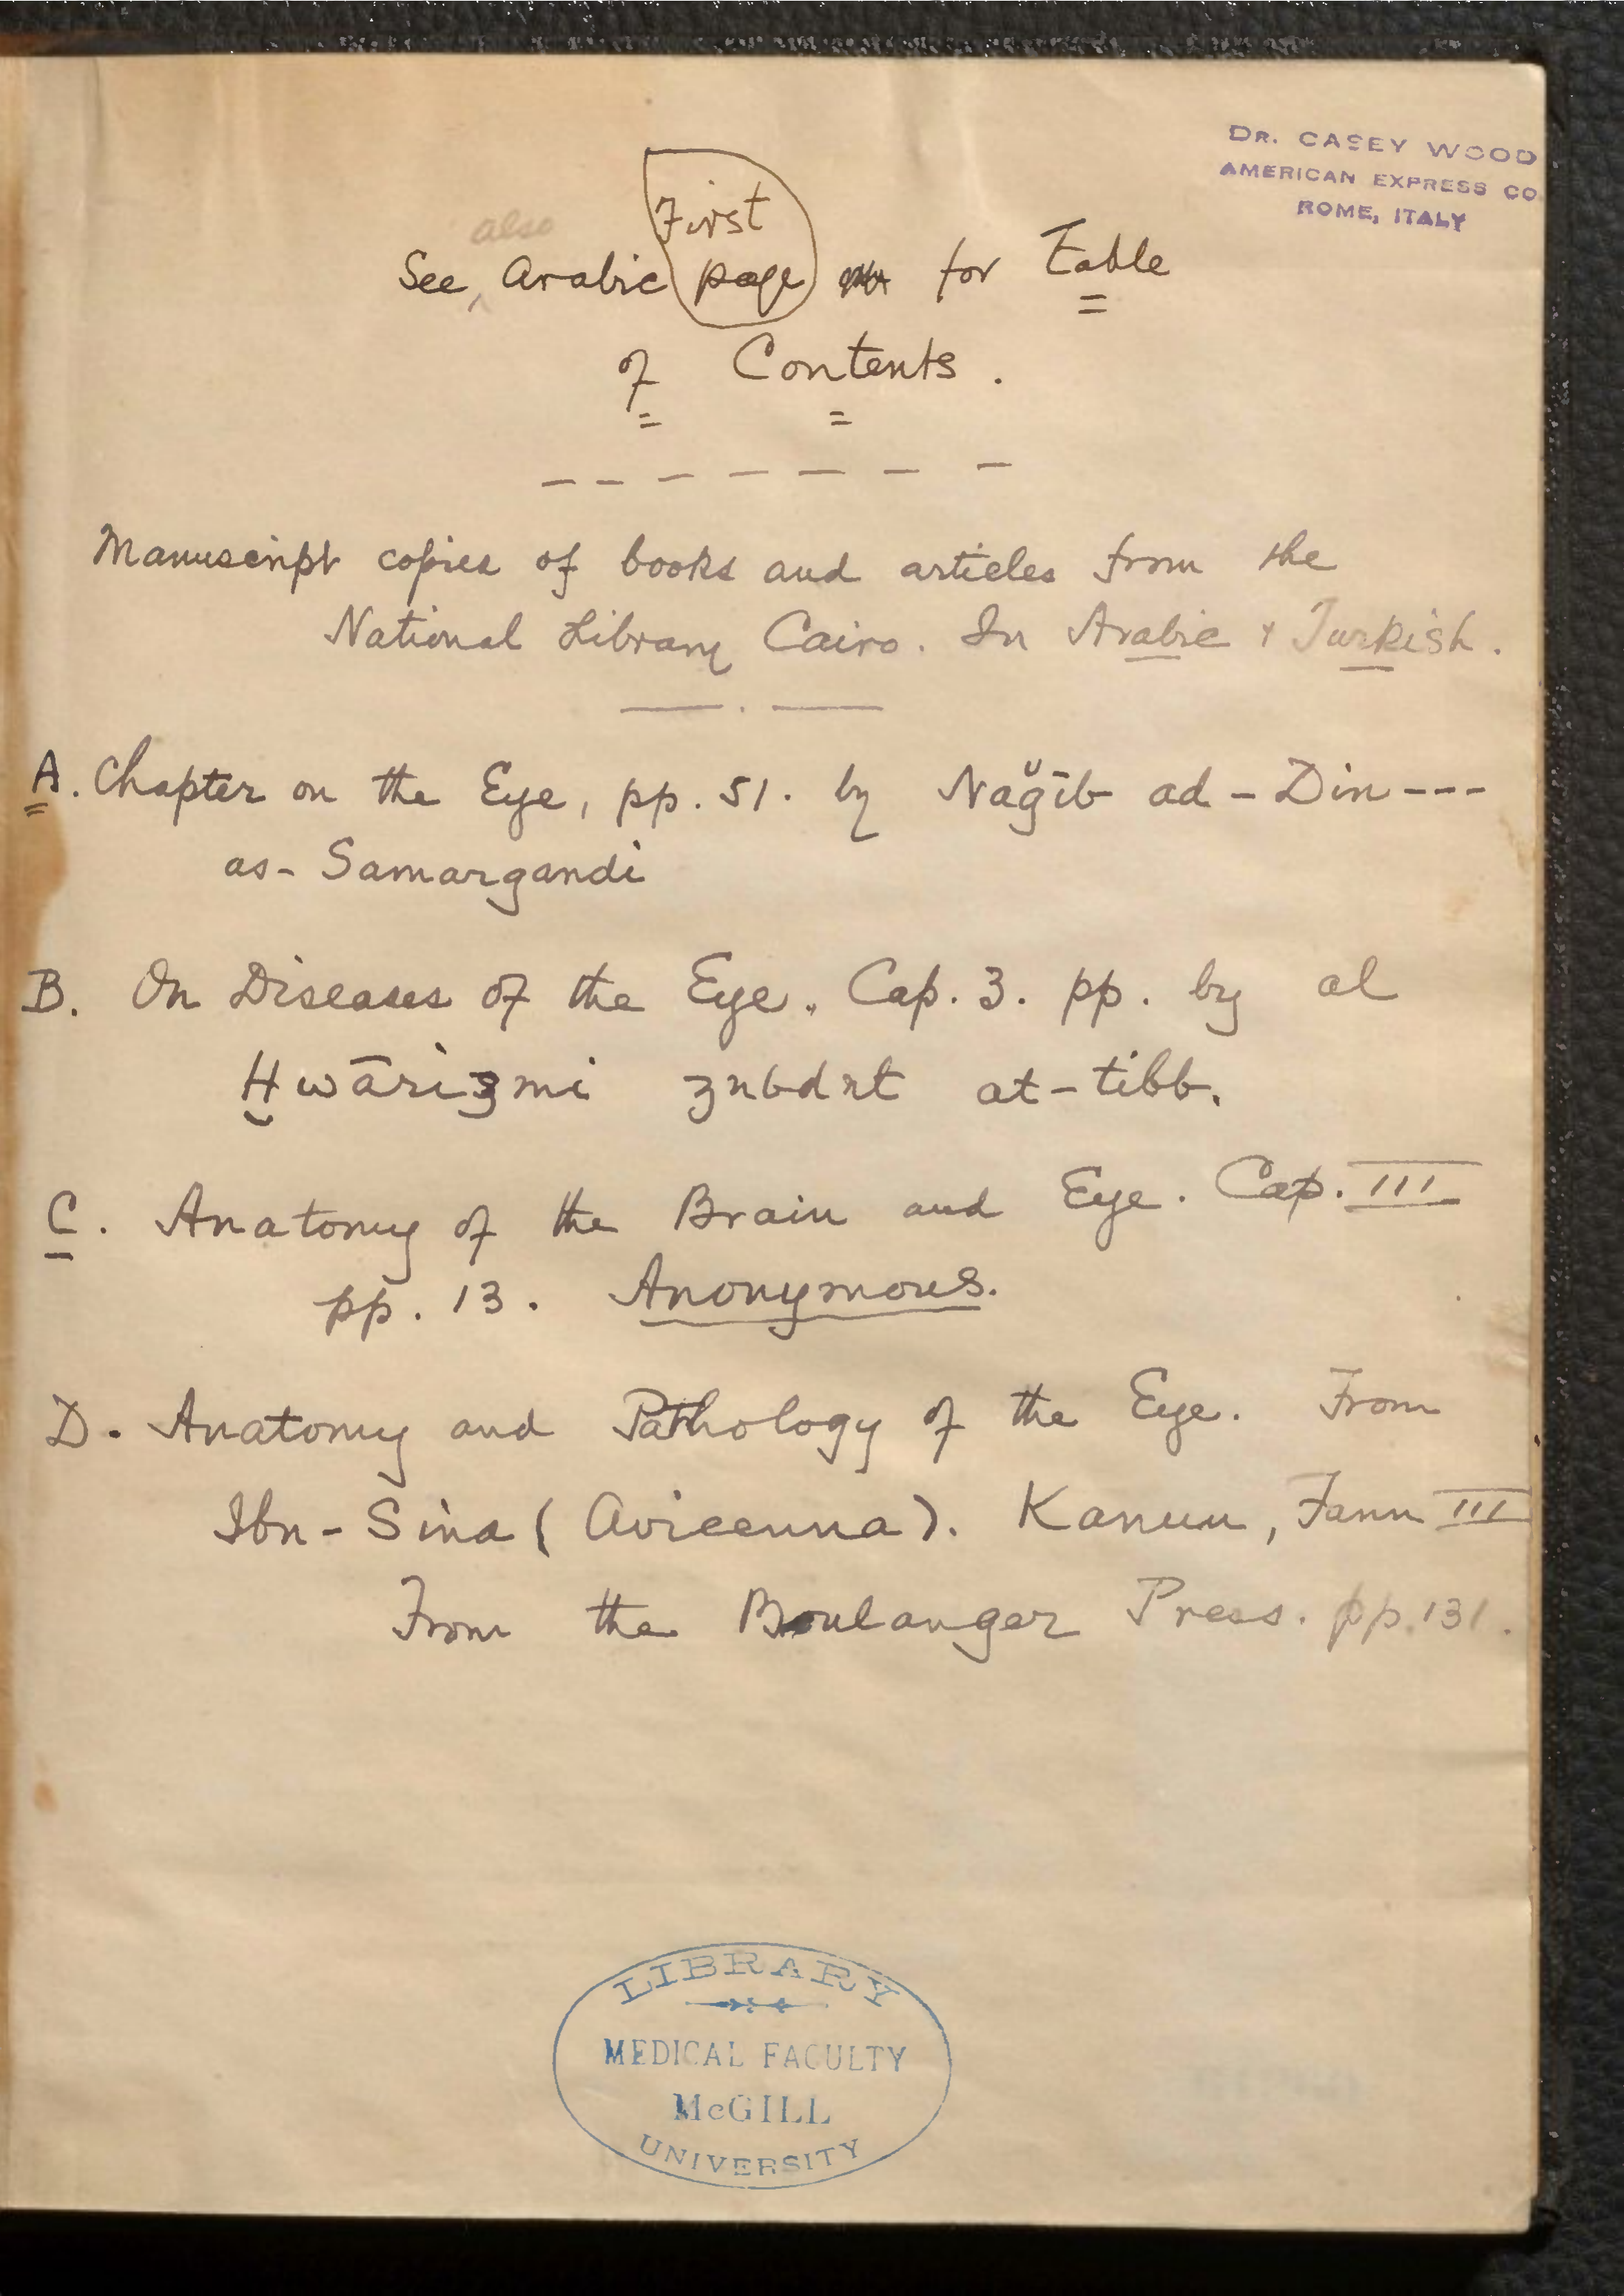 DR. CASEY WOOD
AMERICAN EXPRESS CO
ROME, ITALY
also
First
See, Arabic page for Table
of Contents.
Manuscript copies of books and articles from the
National Library Cairo. In Arabic & Turkish.
A. Chapter on the Eye, pp. 51. by Nağīb ad-Din---
as-Samargandi
B. On Diseases of the Eye. Cap. 3. pp. by al
Ḫwārizmi zubdat at-tibb.
C. Anatomy of the Brain and Eye. Cap. III
pp. 13. Anonymous.
D. Anatomy and Pathology of the Eye. From
Ibn-Sina (Avicenna). Kanun, Fann III
From the Boulanger Press. pp. 131.
LIBRARY
MEDICAL FACULTY
McGILL
UNIVERSITY